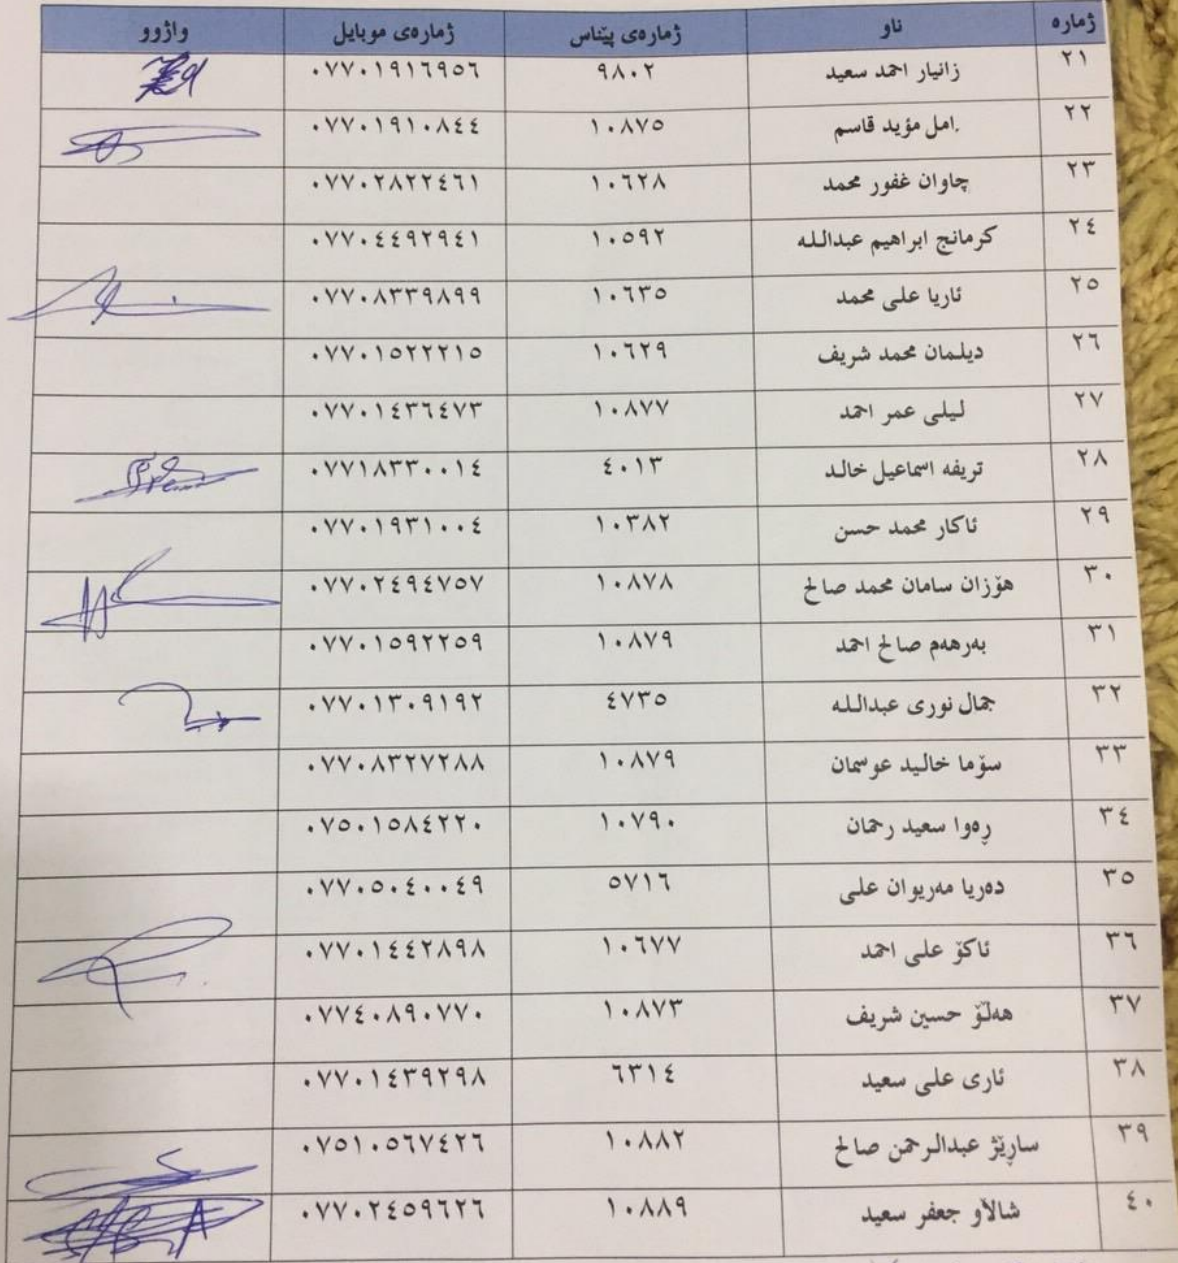 ژمارە ناو ژمارەی پێناس ژمارەی موبایل واژوو
٢١ زانیار احمد سعید ٩٨٠٢ ٠٧٧٠١٩١٦٩٥٦
٢٢ امل مؤید قاسم ١٠٨٧٥ ٠٧٧٠١٩١٠٨٤٤
٢٣ چاوان غفور محمد ١٠٦٢٨ ٠٧٧٠٢٨٢٢٤٦١
٢٤ کرمانج ابراهیم عبدالـلـه ١٠٥٩٢ ٠٧٧٠٤٤٩٢٩٤١
٢٥ ئاریا علی محمد ١٠٦٣٥ ٠٧٧٠٨٣٣٩٨٩٩
٢٦ دیلمان محمد شریف ١٠٦٢٩ ٠٧٧٠١٥٢٢٢١٥
٢٧ لیلی عمر احمد ١٠٨٧٧ ٠٧٧٠١٤٣٦٤٧٣
٢٨ تریفه اسماعیل خالد ٤٠١٣ ٠٧٧١٨٣٣٠٠١٤
٢٩ ئاکار محمد حسن ١٠٣٨٢ ٠٧٧٠١٩٣١٠٠٤
٣٠ هۆزان سامان محمد صالح ١٠٨٧٨ ٠٧٧٠٢٤٩٤٧٥٧
٣١ بەرهەم صالح احمد ١٠٨٧٩ ٠٧٧٠١٥٩٢٢٥٩
٣٢ جمال نوری عبدالـلـه ٤٧٣٥ ٠٧٧٠١٣٠٩١٩٢
٣٣ سۆما خالید عوسمان ١٠٨٧٩ ٠٧٧٠٨٣٢٧٢٨٨
٣٤ ڕەوا سعید رحمان ١٠٧٩٠ ٠٧٥٠١٥٨٤٢٢٠
٣٥ دەریا مەریوان علی ٥٧١٦ ٠٧٧٠٥٠٤٠٠٤٩
٣٦ ئاکۆ علی احمد ١٠٦٧٧ ٠٧٧٠١٤٤٢٨٩٨
٣٧ هەڵۆ حسین شریف ١٠٨٧٣ ٠٧٧٤٠٨٩٠٧٧٠
٣٨ ئاری علی سعید ٦٣١٤ ٠٧٧٠١٤٣٩٢٩٨
٣٩ سارێژ عبدالرحمن صالح ١٠٨٨٢ ٠٧٥١٠٥٦٧٤٢٦
٤٠ شاڵاو جعفر سعید ١٠٨٨٩ ٠٧٧٠٢٤٥٩٦٢٦